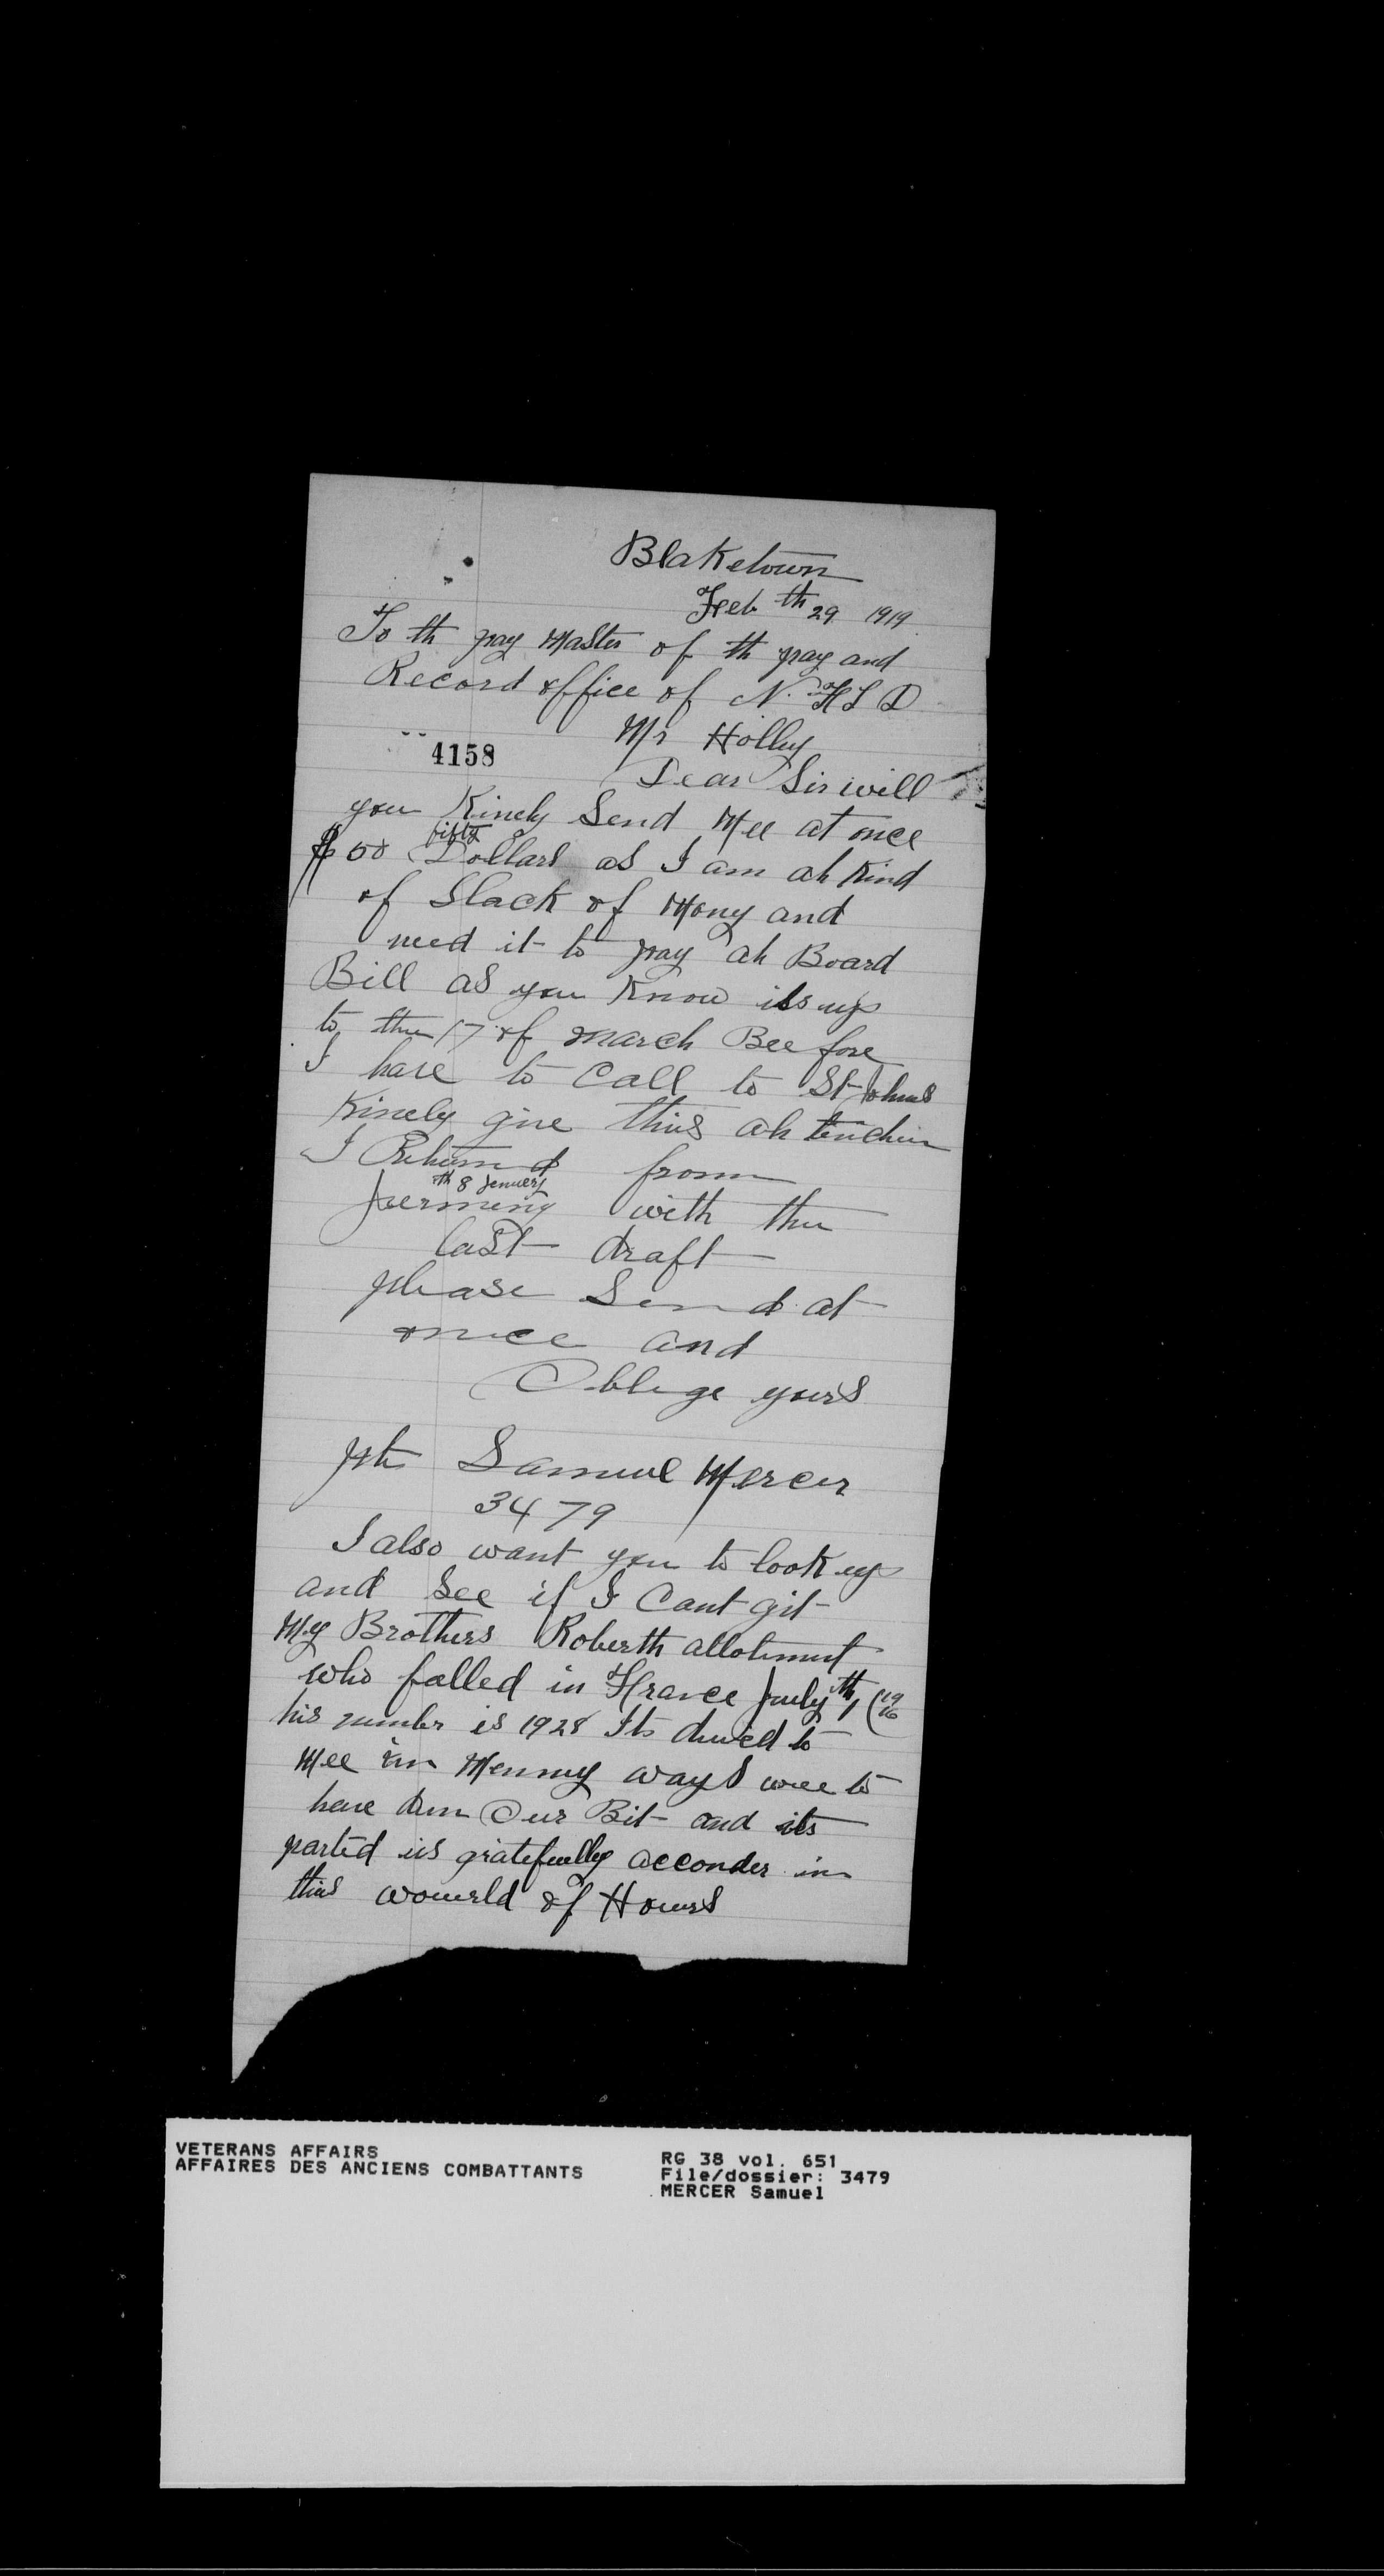 Blaketown
Feb th 29 1919
To th pay Master of th pay and
Record office of N. F L D
Mr Holley
4158
Dear Sir will
you Kinely Send Mee at once
$50 fifty Dollars as I am ah Kind
of Slack of Mony and
need it to pay ah Board
Bill as you Know its up
to the 17 of march Bee fore
I have to Call to St Johns
Kinely give this ah
I from
th 8 Jenuery
with the
last draft
please Send at
once and
Oblige yours
pte Samuel Mercer
3479
I also want you to look up
and See if I Cant git
My Brothers Roberth allotment
who falled in France July th 1 (19 16
his number is 1928 Its dued to
Mee in Menny ways wee to
have dun Our Bit and its
parted us gratefully acconder in
this wourld of Hours
VETERANS AFFAIRS
AFFAIRES DES ANCIENS COMBATTANTS
RG 38 vol. 651
File/dossier: 3479
MERCER Samuel